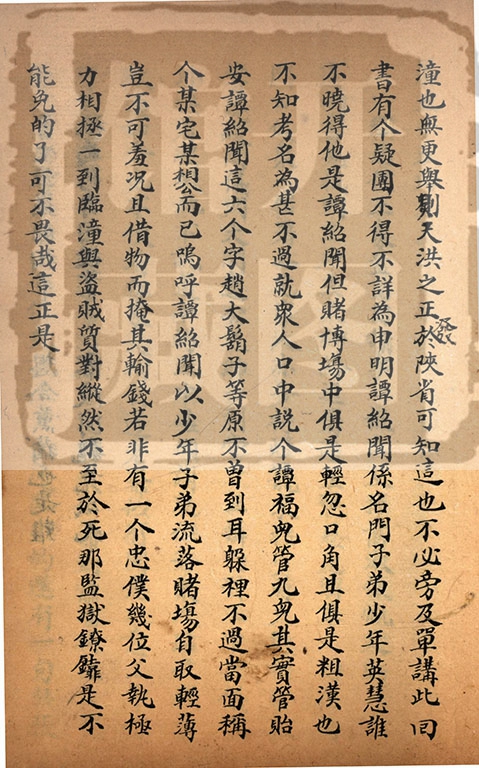 潼也無更舉劉天洪之正於陝省可知這也不必旁及單講此回
發
書有个疑團不得不詳為申明譚紹聞係名門子弟少年英慧誰
不曉得他是譚紹聞但賭博場中俱是輕忽口角且俱是粗漢也
不知考名為甚不過就衆人口中説个譚福兒管九兒其實管貽
安譚紹聞這六个字趙大鬍子等原不曽到耳躲裡不過當面稱
个某宅某想公而已嗚呼譚紹聞以少年子弟流落賭塲自取輕薄
豈不可羞况且借物而掩其輸錢若非有一个忠僕幾位父執極
力相拯一到臨潼與盗賊質對縱然不至於死那監獄鐐靠是不
能免的了可不畏哉這正是